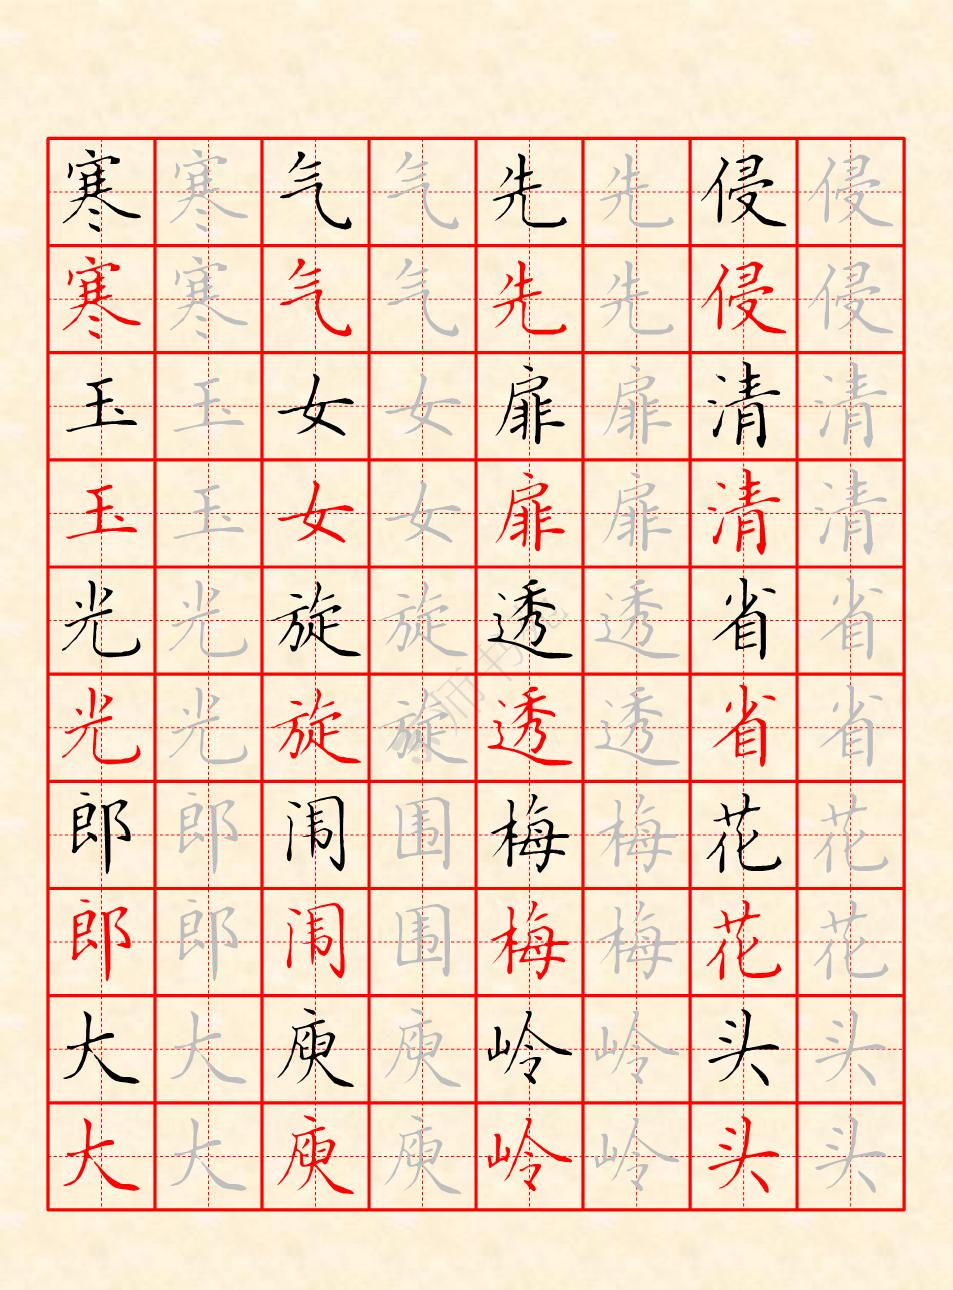 寒寒气气先先侵侵
寒寒气气先先侵侵
玉玉女女扉扉清清
玉玉女女扉扉清清
光光旋旋透透省省
光光旋旋透透省省
郎郎闱围梅梅花花
郎郎闱围梅梅花花
大大庾庾岭岭头头
大大庾庾岭岭头头